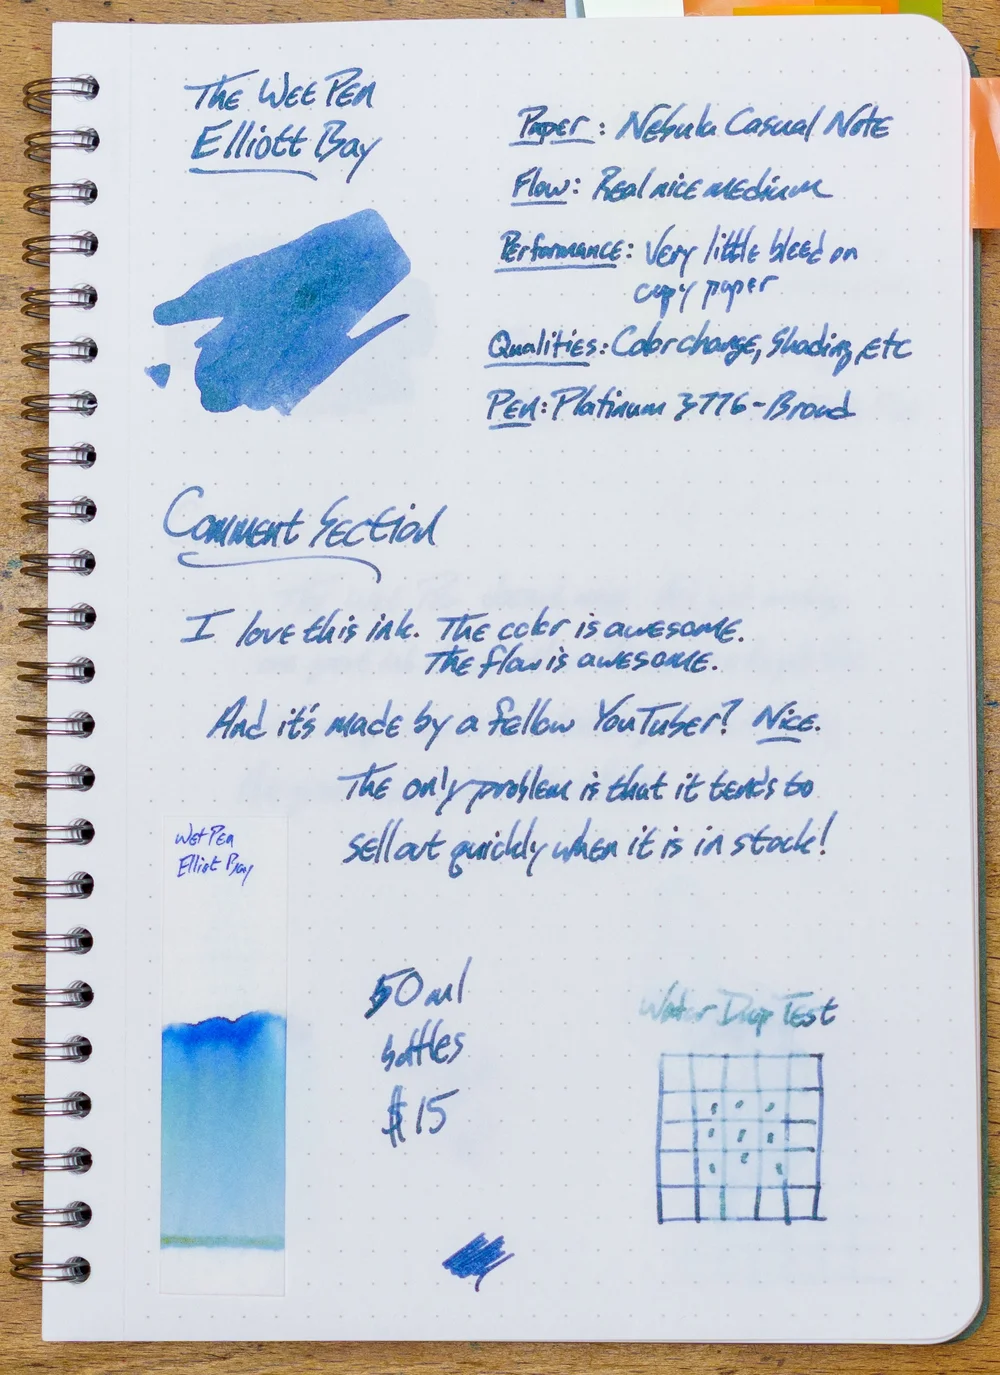 The Wet Pen
Elliott Bay
Paper: Nebula Casual Note
Flow: Real nice medium
Performance: Very little bleed on
copy paper
Qualities: Color change, Shading, etc
Pen: Platinum 3776 - Broad
Comment Section
I love this ink. The color is awesome.
The flow is awesome.
And it's made by a fellow YouTuber? Nice.
The only problem is that it tends to
sell out quickly when it is in stock!
Wet Pen
Elliot Bay
50 ml
bottles
$15
Water Drop Test